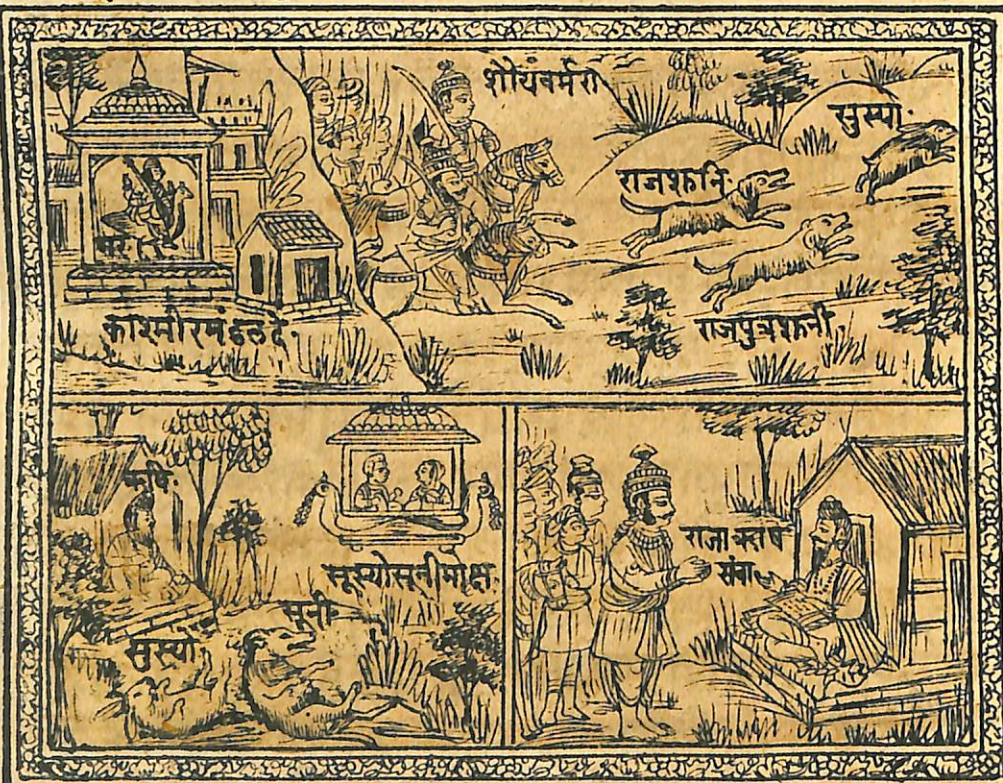 शौर्यवर्मरा
सुस्यो:
राजश्वनि:
राजपुत्रश्वनी
काश्मीरमंडलदे
ऋषि:
सूस्योसूनीमोक्ष
सूनी
सुस्यो
राजाऋषि
संवा